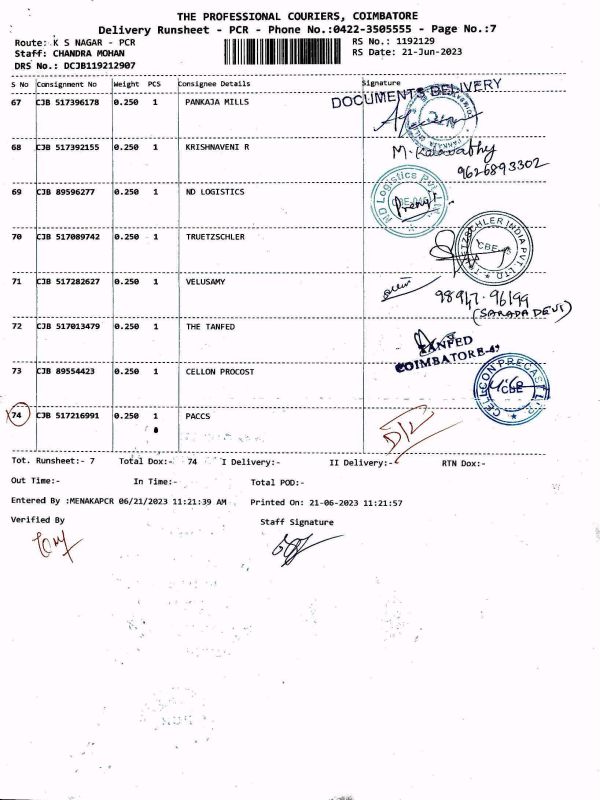 THE PROFESSIONAL COURIERS, COIMBATORE
Delivery Runsheet - PCR - Phone No.:0422-3505555 - Page No.:7
Route: K S NAGAR - PCR RS No.: 1192129
Staff: CHANDRA MOHAN RS Date: 21-Jun-2023
DRS No.: DCJB119212907
S No Consignment No Weight PCS Consignee Details Signature
DOCUMENTS DELIVERY
67 CJB 517396178 0.250 1 PANKAJA MILLS
68 CJB 517392155 0.250 1 KRISHNAVENI R M. Kalavathy
9626893302
69 CJB 89596277 0.250 1 ND LOGISTICS
ND Logistics Pvt. Ltd.
70 CJB 517089742 0.250 1 TRUETZSCHLER
CBE
71 CJB 517282627 0.250 1 VELUSAMY 98947-96199
(SARADA DEVI)
72 CJB 517013479 0.250 1 THE TANFED
TANFED
COIMBATORE-4
73 CJB 89554423 0.250 1 CELLON PROCOST
CELLCON PRECAST
CBE
74 CJB 517216991 0.250 1 PACCS D/L
Tot. Runsheet:- 7 Total Dox:- 74 I Delivery:- II Delivery:- RTN Dox:-
Out Time:- In Time:- Total POD:-
Entered By :MENAKAPCR 06/21/2023 11:21:39 AM Printed On: 21-06-2023 11:21:57
Verified By Staff Signature